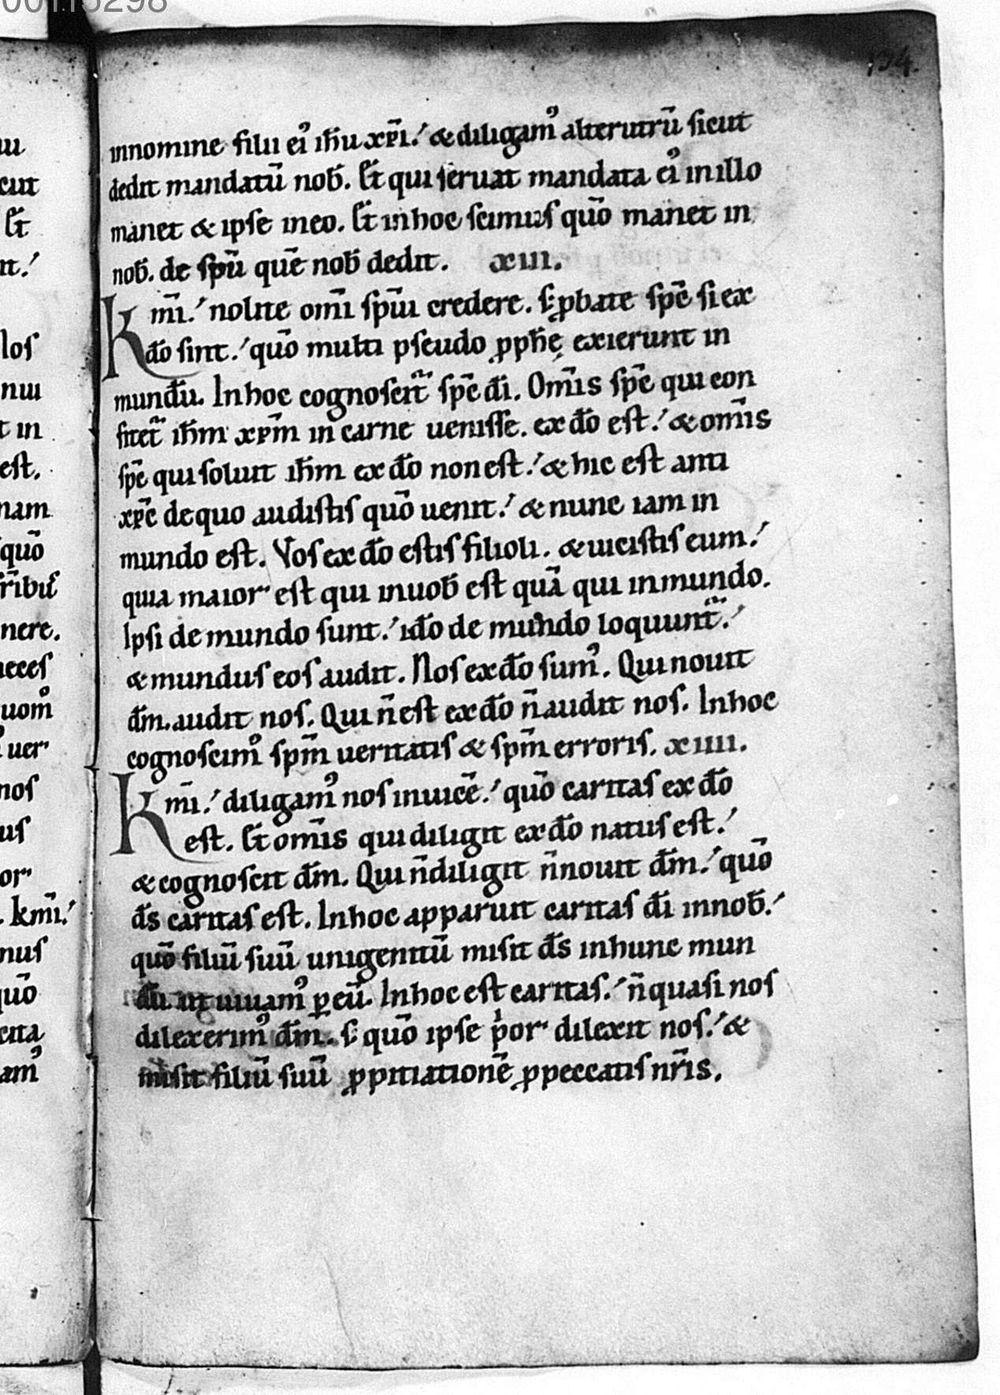 00115298
194.
innomine filii eiꝰ ihu xp̄i.' & diligamꝰ alterutrū sicut
dedit mandatū nob̄. Et qui seruat mandata eiꝰ in illo
manet & ipse ineo. Et inhoc scimus quō manet in
nob̄. de sp̄u quē nob̄ dedit. xiii.
Km̄i.' nolite om̄i sp̄ui credere. s; ꝓbate sp̄c si ex
d̄o sint.' quō multi pseudo ꝓph̄ę exierunt in
mund̄u. Inhoc cognoscit᷑ sp̄c d̄i. Om̄is sp̄c qui con
fitet᷑ ih̄m xp̄m in carne uenisse. ex d̄o est.' & om̄is
sp̄c qui soluit ih̄m ex d̄o non est.' & hic est anti
xp̄c dequo audistis quō uenit.' & nunc iam in
mundo est. Vos ex d̄o estis filioli. & uicistis eum.'
quia maior est qui inuob̄ est quā qui inmundo.
Ipsi de mundo sunt.' id̄o de mundo loquunt᷑.'
& mundus eos audit. Nos ex d̄o sumꝰ. Qui nouit
d̄m. audit nos. Qui n̄ est ex d̄o n̄ audit nos. Inhoc
cognoscimꝰ sp̄m ueritatis & sp̄m erroris. xiiii.
Km̄i.' diligamꝰ nos inuicē.' quō caritas ex d̄o
est. Et om̄is qui diligit ex d̄o natus est.'
& cognoscit d̄m. Qui n̄ diligit n̄ nouit d̄m.' quō
d̄s caritas est. Inhoc apparuit caritas d̄i innob̄.'
quō filiū suū unigenitū misit d̄s inhunc mun
d̄u ut uiuamꝰ ꝑ eū. Inhoc est caritas.' n̄ quasi nos
dilexerimꝰ d̄m. s; quō ipse prior dilexit nos.' &
misit filiū suū ꝓpitiationē ꝓ peccatis nr̄is.